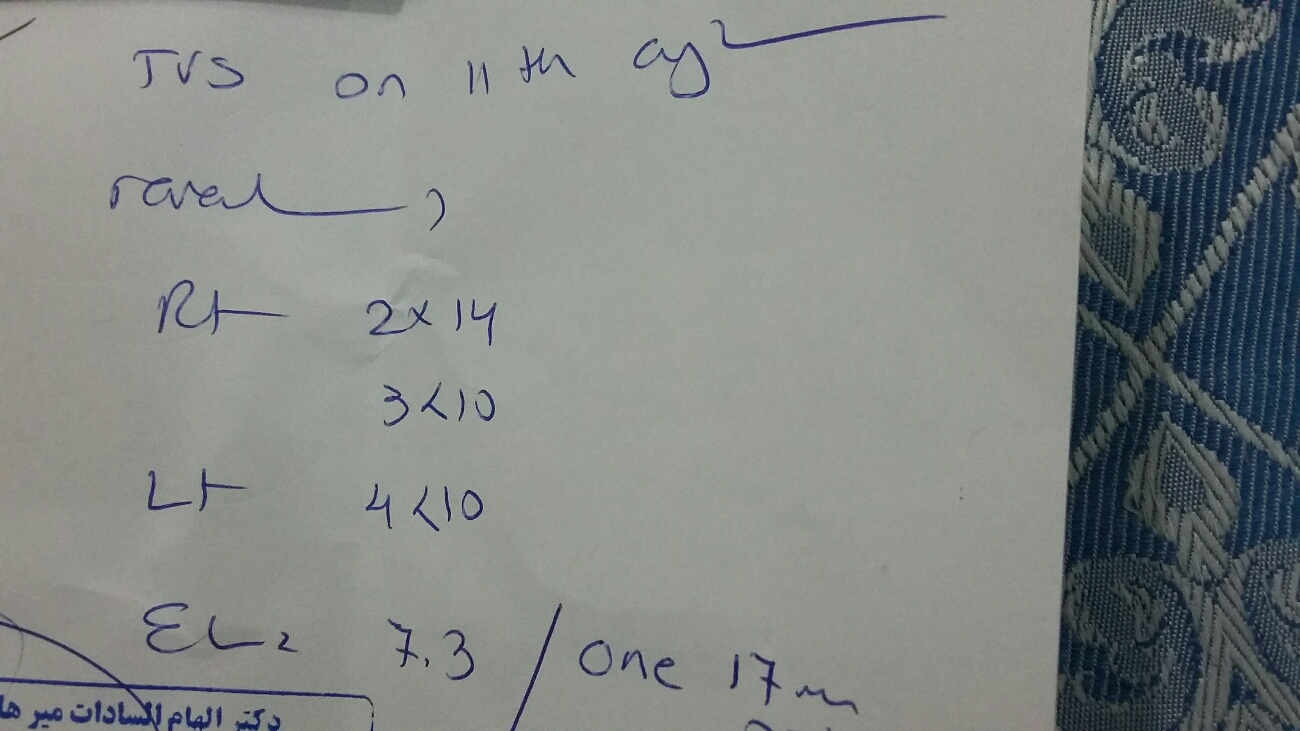 TVS on 11th
reveal,
Rt 2×14
3<10
Lt 4<10
EL= 7.3 / One 17m
دکتر الهام السادات میر ها